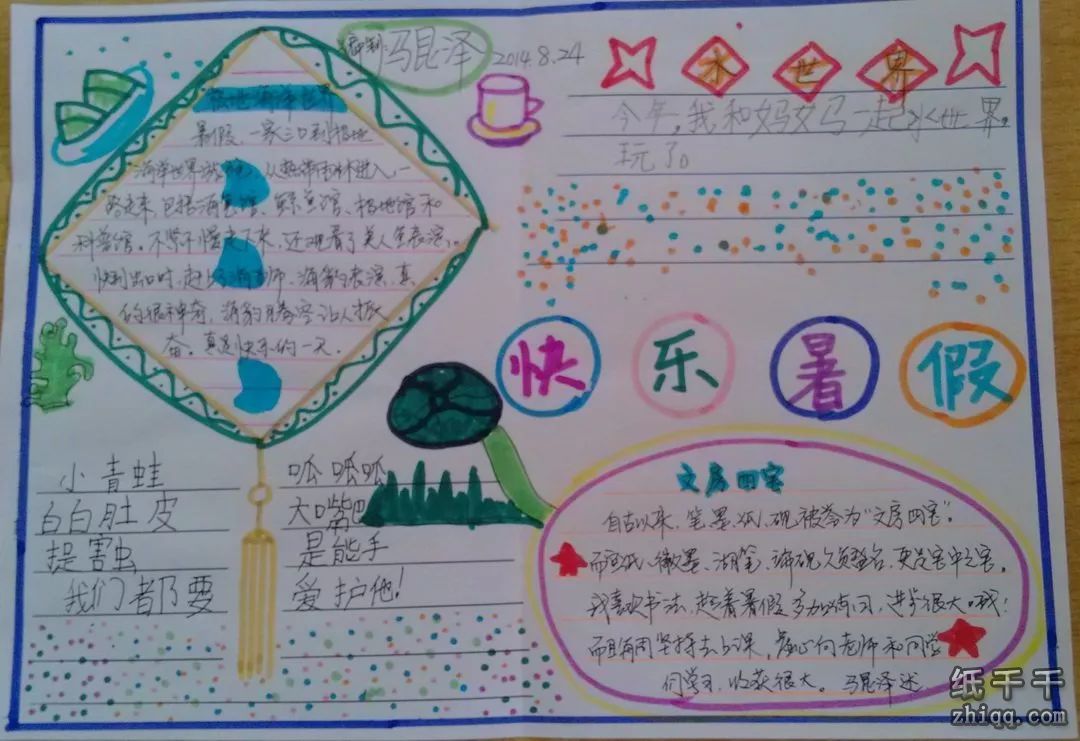 编制:马昆泽 2014.8.24
极地海洋世界
暑假,一家三口到极地
海洋世界游玩,从热带雨林进入,一
路走来,包括海兽馆、鲸鱼馆、极地馆和
科普馆。不紧不慢走下来,还观看了美人鱼表演。
快到出口时,赶上海狮、海豹表演,真
的很神奇,海豹腾空让人振
奋。真是快乐的一天。
水世界
今年,我和妈妈一起水世界,
玩了。
快乐暑假
小青蛙 呱呱呱
白白肚皮 大嘴巴
捉害虫 是能手
我们都乃要 爱护他!
文房四宝
自古以来,笔、墨、纸、砚被誉为“文房四宝”。
而宣纸、徽墨、湖笔、端砚久负盛名,更是宝中之宝。
我喜欢书法,趁着暑假,参加练习,进步很大。
而且每周坚持去上课,虚心向老师和同学
们学习,收获很大。 马昆泽述
纸千千
zhiqq.com